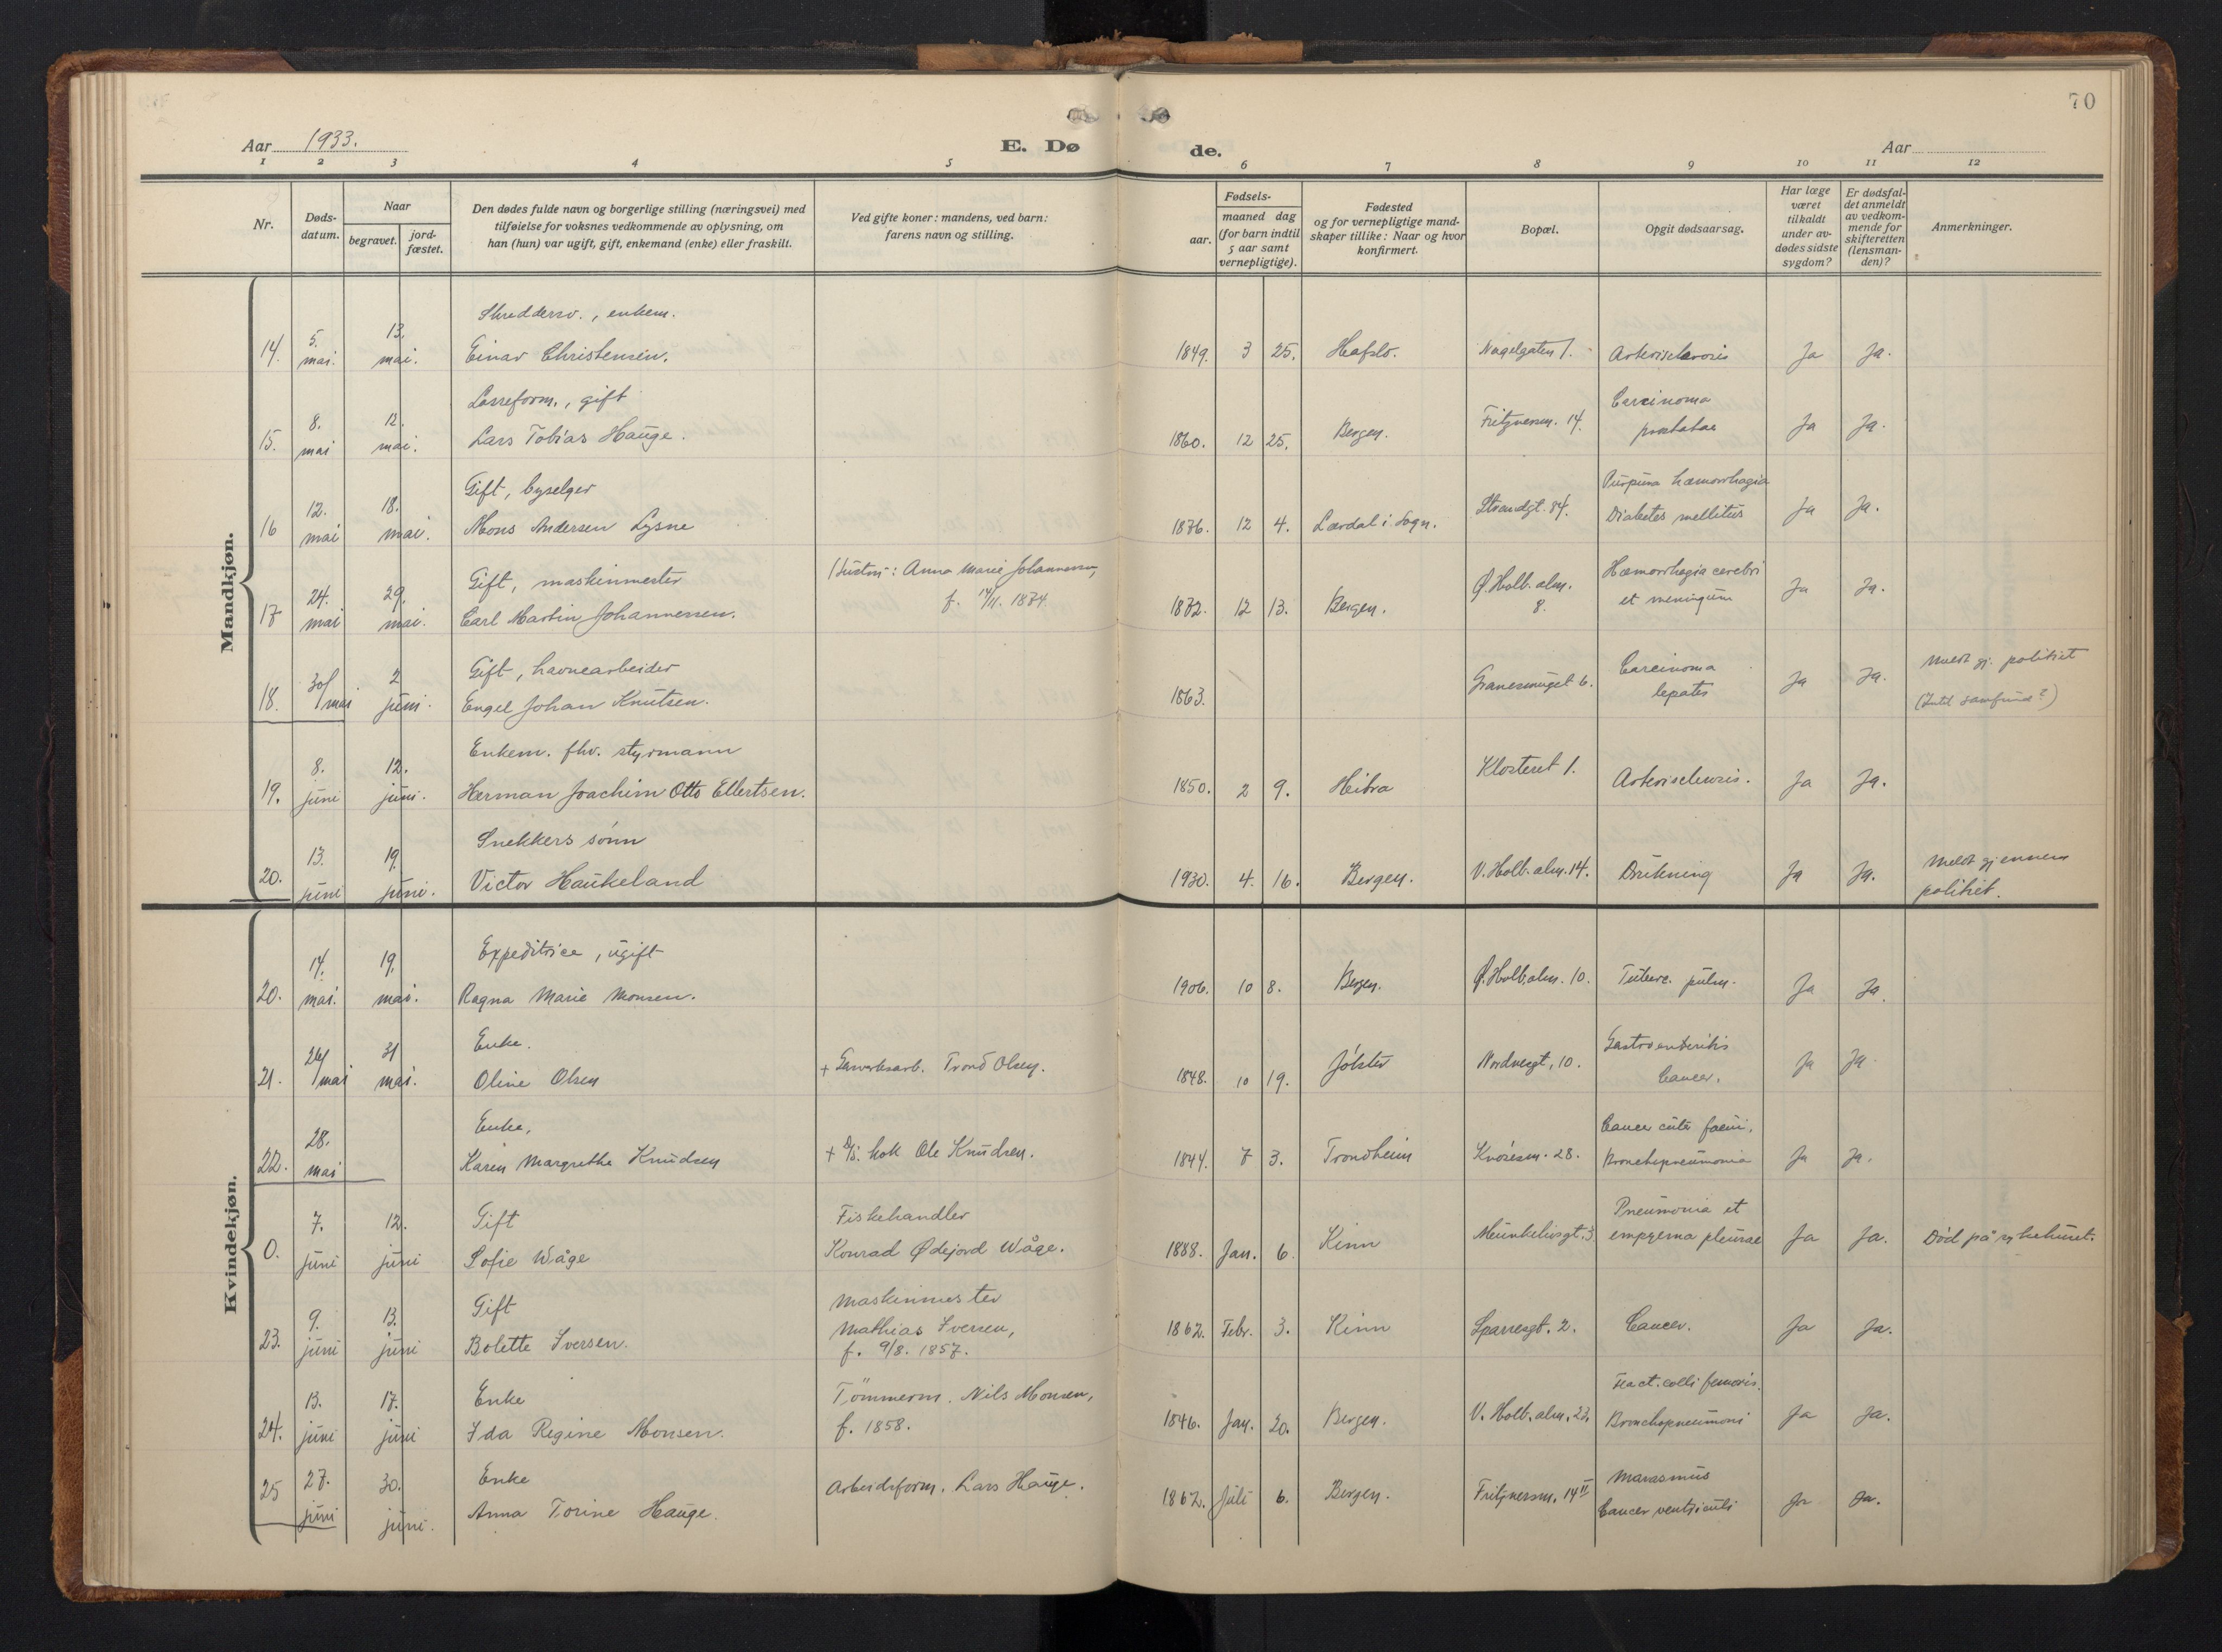 70
Aar 1933.
E. Dø de.
Aar
1 2 3 4 5 6 7 8 9 10 11 12
Nr.
Døds-
datum.
Naar
begravet.
jord-
fæstet.
Den dødes fulde navn og borgerlige stilling (næringsvei) med
tilføielse for voksnes vedkommende av oplysning, om
han (hun) var ugift, gift, enkemand (enke) eller fraskilt.
Ved gifte koner: mandens, ved barn:
farens navn og stilling.
Fødsels-
aar.
maaned dag
(for barn indtil
5 aar samt
vernepligtige).
Fødested
og for vernepligtige mand-
skaper tillike: Naar og hvor
konfirmert.
Bopæl.
Opgit dødsaarsag.
Har læge
været
tilkaldt
under av-
dødes sidste
sygdom?
Er dødsfal-
det anmeldt
av vedkom-
mende for
skifteretten
(lensman-
den)?
Anmerkninger.
Mandkjøn.
Skredderm., enkem.
14. 5. mai. 13. mai. Einar Christensen. 1849. 3 25. Hafslo. Nagelgaten 1. Arteriosclerosis Ja Ja.
Lasseform., gift
15. 8. mai 12. mai. Lars Tobias Hauge. 1860. 12 25. Bergen. Fritznersm. 14. Carcinoma prostatae Ja Ja.
Gift, byselger
16 12. mai 18. mai. Mons Andersen Lysne 1876. 12 4. Lærdal i Sogn. Strandgt. 84. Purpura hæmorrhagia Diabetes mellitus Ja Ja.
Gift, maskinmester
17 24. mai 29. mai. Carl Martin Johannessen. Hustru: Anna Marie Johannessen, f. 14/11. 1874 1872. 12 13. Bergen. Ø. Holb. alm. 8. Hæmorrhagia cerebri et meningum Ja Ja.
Gift, havnearbeider
18. 30/mai 2 juni. Engel Johan Knutsen. 1863. Granesmuget 6. Carcinoma hepatis Ja Ja. Meldt gj. politiet
(Intet samfund?)
Enkem. fhv. styrmann
19. 8. juni 12. juni. Herman Joachim Otto Ellertsen. 1850. 2 9. Hitra Klosteret 1. Arteriosclerosis. Ja Ja.
Snekkers sønn
20. 13. juni 19. juni. Victor Haukeland 1930. 4. 16. Bergen. V. Holb. alm. 14. Drukning Ja Ja. Meldt gjennem
politiet.
Kvindekjøn.
Expeditrice, ugift
20. 14. mai. 19. mai. Ragna Marie Monsen. 1906. 10 8. Bergen. Ø. Holb. alm. 10. Tuberc. pulm. Ja Ja.
Enke.
21. 26/mai 31 mai. Oline Olsen + Gasverksarb. Trond Olsen. 1848. 10 19. Jølster Nordnesgt. 10. Gastroenteritis Cancer. Ja Ja
Enke,
22. 28. mai Karen Margrethe Knudsen + D/S. kok Ole Knudsen. 1844. 7 3. Trondheim Knøsesm. 28. Cancer cutis faciei. Bronchopneumonia Ja Ja.
Gift Fiskehandler
0. 7. juni 12. juni Sofie Wåge Konrad Ødejord Wåge. 1888. Jan. 6. Kinn Munkebusgt. 3 Pneumonia et empyema pleurae Ja Ja. Død på sykehuset.
Gift Maskinmester
23. 9. juni 13. juni Bolette Iversen. Mathias Iversen, f. 9/8. 1857. 1862. Febr. 3. Kinn Sparresgt. 2. Cancer. Ja Ja.
Enke Tømmerm. Nils Monsen,
24. 13. juni 17. juni Ida Regine Monsen. f. 1858. 1846. Jan. 20. Bergen. V. Holb. alm. 23. Fract. colli femoris. Bronchopneumoni Ja Ja.
Enke
25 27. juni 30. juni. Anna Torine Hauge. Arbeidsform. Lars Hauge. 1862. Juli 6. Bergen. Fritznersm. 14 II Marasmus Cancer ventriculi Ja Ja.